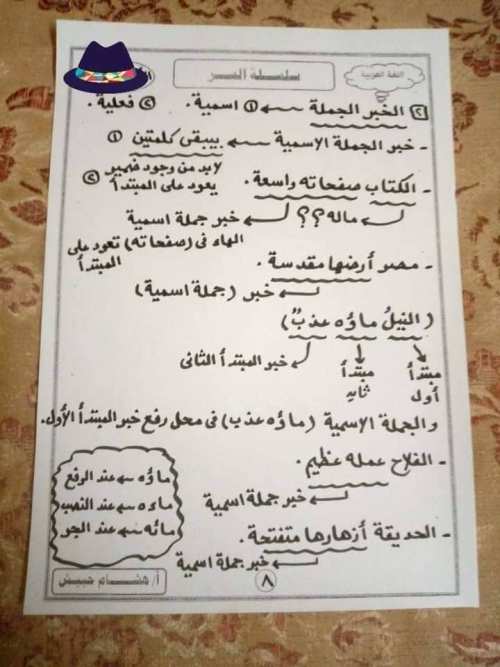 اللغة العربية
سلسلة النسر
٢ الخبر الجملة ← ① اسمية . ② فعلية .
- خبر الجملة الاسمية ← بيبقى كلمتين ①
لابد من وجود ضمير يعود على المبتدأ ②
- الكتاب صفحاته واسعة .
ماله ؟؟ خبر جملة اسمية
الهاء فى (صفحاته) تعود على المبتدأ
- مصر أرضها مقدسة .
خبر (جملة اسمية)
(النيلُ ماؤه عذبٌ)
مبتدأ أول
مبتدأ ثانٍ
خبر المبتدأ الثانى
و الجملة الاسمية (ماؤه عذب) فى محل رفع خبر المبتدأ الأول.
- الفلاح عمله عظيم .
خبر جملة اسمية
ماؤه ← عند الرفع
ماءه ← عند النصب
مائه ← عند الجر
- الحديقة أزهارها متفتحة .
خبر جملة اسمية
٨
أ/ هشام حبيش